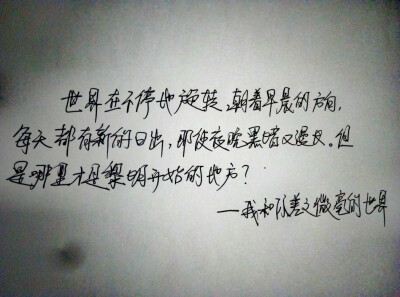 世界在不停地旋转,朝着早晨的方向,
每天都有新的日出,即使夜晚黑暗又漫长。但
是哪里才是黎明开始的地方?
——我和你差之微毫的世界